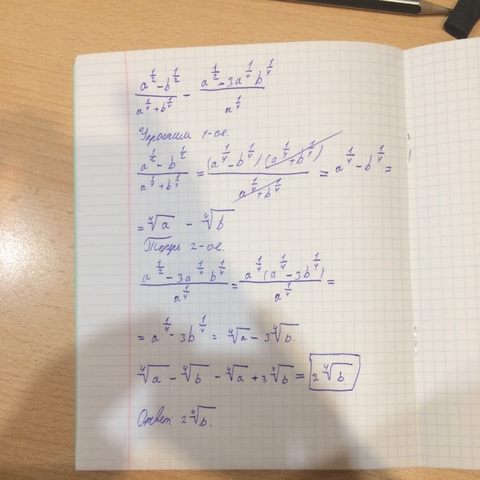 (a^{1/2} - b^{1/2})/(a^{1/4} + b^{1/4}) - (a^{1/2} - 3a^{1/4} b^{1/4})/(a^{1/4})
Упростим 1-ое.
(a^{1/2} - b^{1/2})/(a^{1/4} + b^{1/4}) = ((a^{1/4} - b^{1/4})(a^{1/4} + b^{1/4}))/(a^{1/4} + b^{1/4}) = a^{1/4} - b^{1/4} =
= ∜a - ∜b
Теперь 2-ое.
(a^{1/2} - 3a^{1/4} b^{1/4})/(a^{1/4}) = (a^{1/4}(a^{1/4} - 3b^{1/4}))/(a^{1/4}) =
= a^{1/4} - 3b^{1/4} = ∜a - 3∜b.
∜a - ∜b - ∜a + 3∜b = 2∜b
Ответ 2∜b.